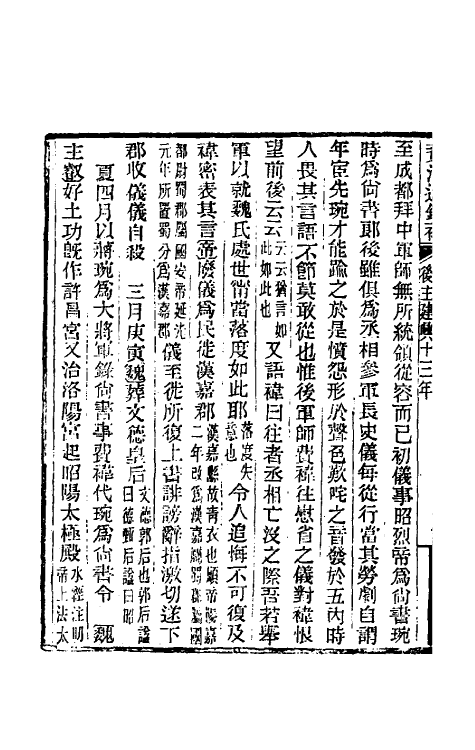 後主建興十三年
至成都拜中軍師無所統領從容而已初儀事昭烈帝爲尚書琬
時爲尚書郎後雖俱爲丞相參軍長史儀每從行當其勞劇自謂
年宦先琬才能踰之於是憤怨形於聲色歎咤之音發於五內時
人畏其言語不節莫敢從也惟後軍師費禕往慰省之儀對禕恨
望前後云云云云猶言如此如此也又語禕曰往者丞相亡沒之際吾若舉
軍以就魏氏處世甯當落度如此耶落度失意也令人追悔不可復及
禕密表其言帝廢儀爲民徙漢嘉郡漢嘉縣故青衣也順帝陽嘉二年改爲漢嘉屬蜀郡屬國
都尉蜀郡屬國安帝延光元年所置蜀分爲漢嘉郡儀至徙所復上書誹謗辭指激切遂下
郡收儀儀自殺 三月庚寅魏葬文德皇后文德郭后也郭后諡曰德甄后諡曰昭
夏四月以蔣琬爲大將軍錄尚書事費禕代琬爲尚書令 魏
主叡好土功旣作許昌宮又治洛陽宮起昭陽太極殿水經注明帝上法太